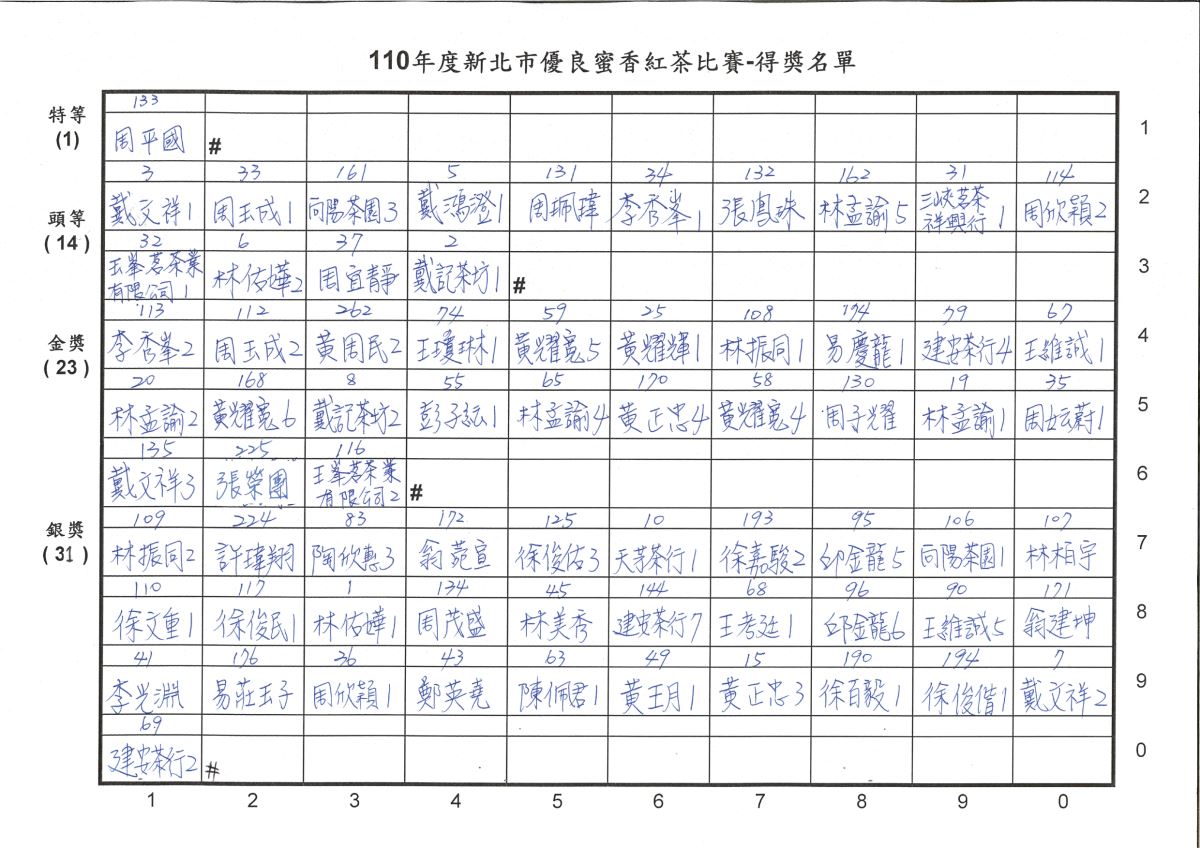 110年度新北市優良蜜香紅茶比賽-得獎名單
133
特等 1
(1) 周平國 #
3 33 161 5 131 34 132 162 31 114
頭等 戴文祥1 周玉成1 向陽茶園3 戴鴻澄1 周珮瑋 李秀峯1 張鳳珠 林孟諭5 三峽茗茶祥興行1 周欣穎2 2
(14) 32 6 37 2
玉峯茗茶業有限公司1 林佑嬅2 周宜靜 戴記茶坊1 # 3
113 112 262 74 59 25 108 174 79 67
金獎 李秀峯2 周玉成2 黃周民2 王瓊琳1 黃耀寬5 黃耀輝1 林振同1 易慶龍1 建安茶行4 王維誠1 4
(23) 20 168 8 55 65 170 58 130 19 35
林孟諭2 黃耀寬6 戴記茶坊2 彭子紜1 林孟諭4 黃正忠4 黃耀寬4 周子耀 林孟諭1 周妶蔚1 5
135 225 116
戴文祥3 張榮團 玉峯茗茶業有限公司2 # 6
109 224 83 172 125 10 193 95 106 107
銀獎 林振同2 許瑋翔 陶欣惠3 翁菀宣 徐俊佑3 天芳茶行1 徐嘉駿2 邱金龍5 向陽茶園1 林柏宇 7
(31) 110 117 1 134 45 144 68 96 90 171
徐文重1 徐俊民1 林佑嬅1 周茂盛 林美秀 建安茶行7 王考廷1 邱金龍6 王維誠5 翁建坤 8
41 176 36 43 63 49 15 190 194 7
李光淵 易莊玉子 周欣穎1 鄭英堯 陳佩君1 黃王月1 黃正忠3 徐百毅1 徐俊偕1 戴文祥2 9
69
建安茶行2 # 0
1 2 3 4 5 6 7 8 9 0